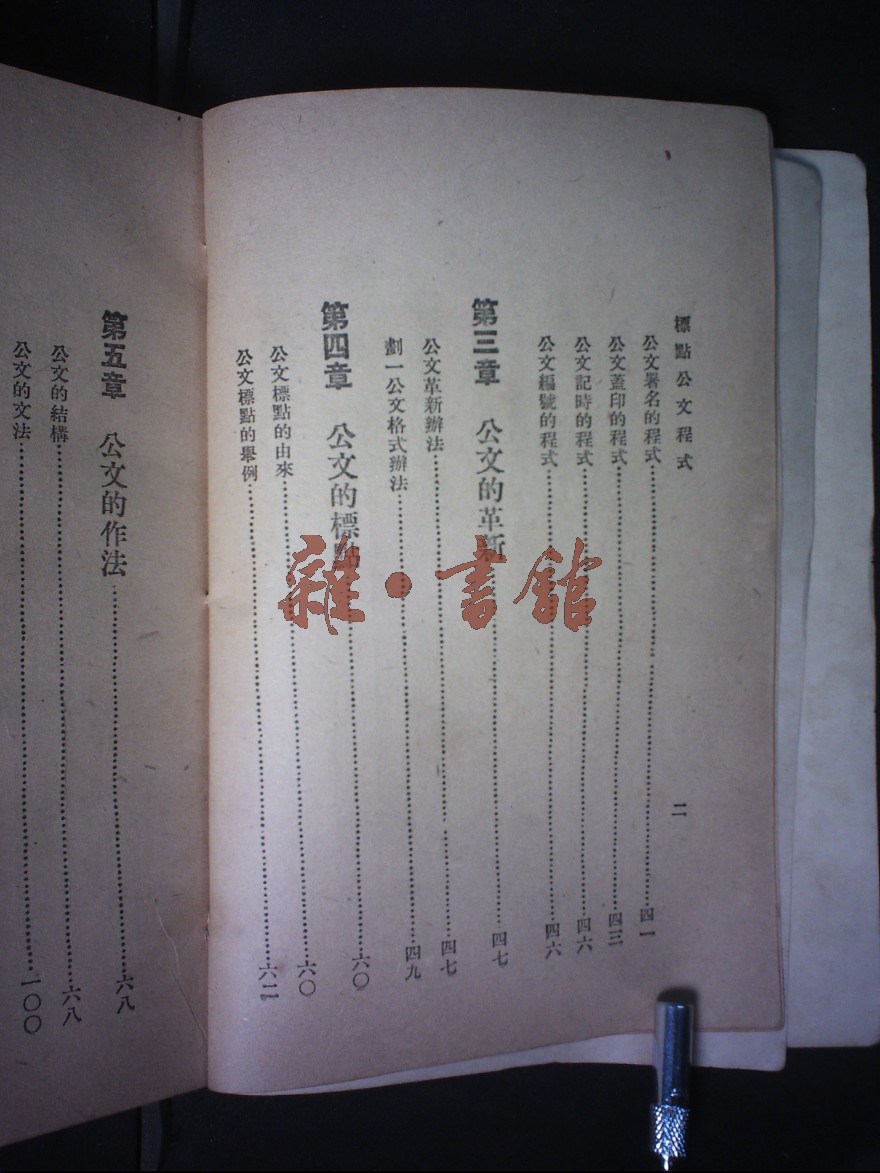 標點公文程式 二
公文署名的程式……四一
公文蓋印的程式……四三
公文記時的程式……四六
公文編號的程式……四六
第三章 公文的革新……四七
公文革新辦法……四七
劃一公文格式辦法……四九
第四章 公文的標點……六〇
公文標點的由來……六〇
公文標點的舉例……六二
第五章 公文的作法……六八
公文的結構……六八
公文的文法……一〇〇
雜·書館